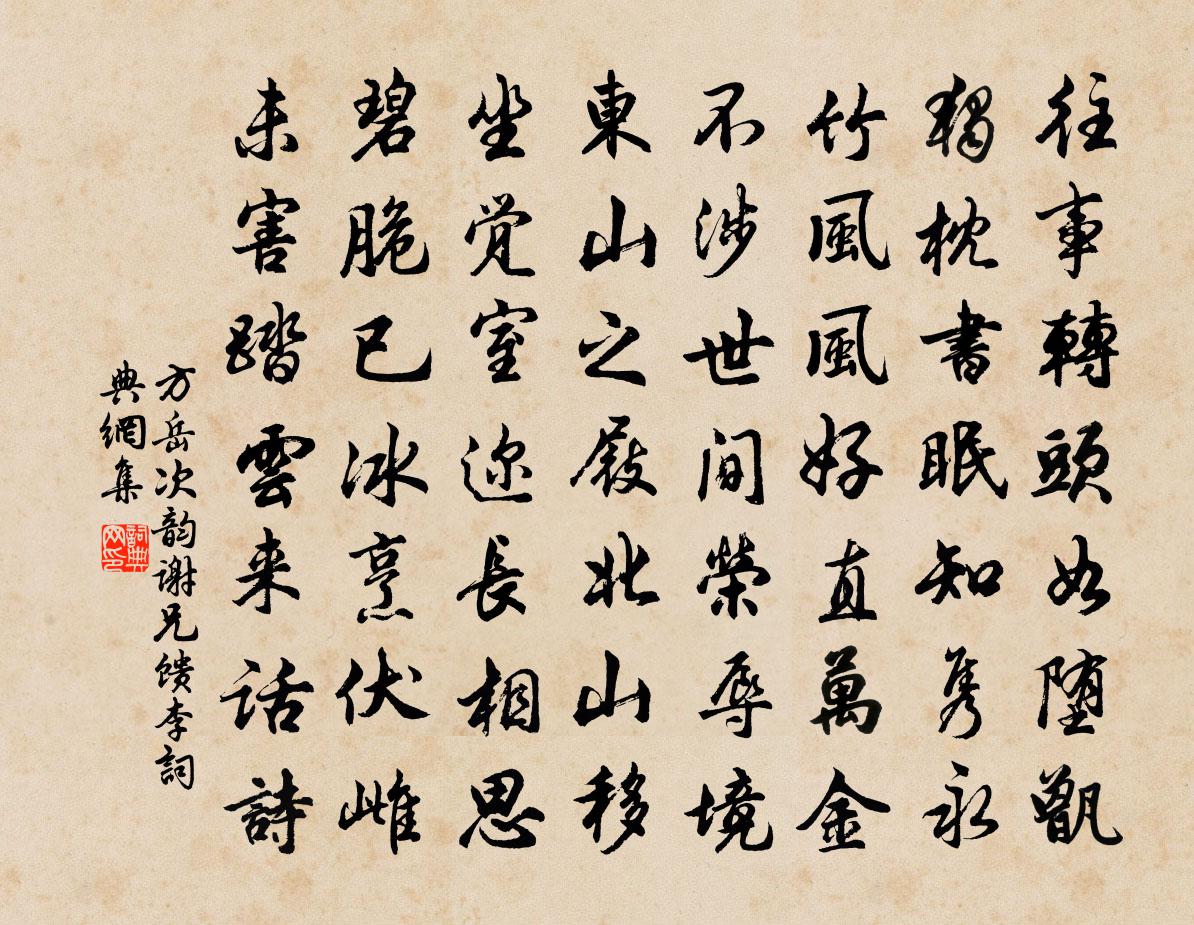 往事轉頭如堕甑
獨枕書眠知雋永
竹風風好直萬金
不涉世間榮辱境
東山之屐北山移
坐覺室迩長相思
碧脆已冰烹伏雌
未害踏雲来话詩
方岳次韵谢兄馈李詞
典網集
詞典网印